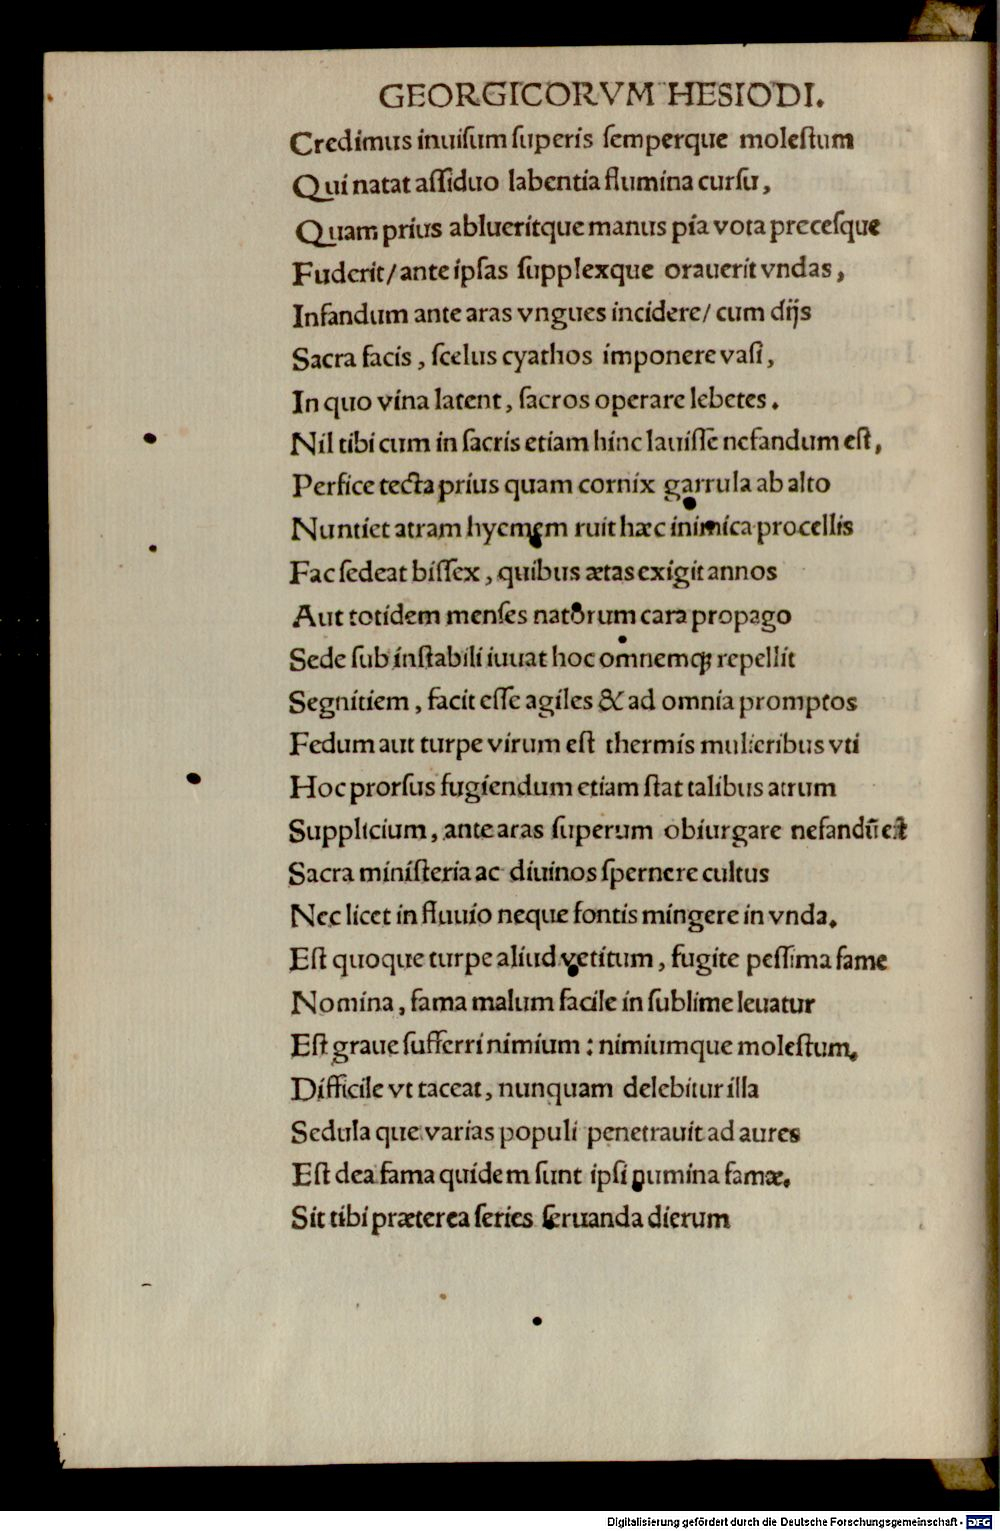 GEORGICORVM HESIODI.
Credimus inuiſum ſuperis ſemperque moleſtum
Qui natat aſſiduo labentia flumina curſu,
Quam prius ablueritque manus pia vota preceſque
Fuderit/ ante ipſas ſupplexque orauerit vndas,
Infandum ante aras vngues incidere/ cum dijs
Sacra facis, ſcelus cyathos imponere vaſi,
In quo vina latent, ſacros operare lebetes.
Nil tibi cum in ſacris etiam hinc lauiſſe nefandum eſt,
Perfice tecta prius quam cornix garrula ab alto
Nuntiet atram hyemem ruit hæc inimica procellis
Fac ſedeat biſſex, quibus ætas exigit annos
Aut totidem menſes natorum cara propago
Sede ſub inſtabili iuuat hoc omnemqꝫ repellit
Segnitiem, facit eſſe agiles & ad omnia promptos
Fedum aut turpe virum eſt thermis mulieribus vti
Hoc prorſus fugiendum etiam ſtat talibus atrum
Supplicium, ante aras ſuperum obiurgare nefandū eſt
Sacra miniſteria ac diuinos ſpernere cultus
Nec licet in fluuio neque fontis mingere in vnda.
Eſt quoque turpe aliud vetitum, fugite peſſima fame
Nomina, fama malum facile in ſublime leuatur
Eſt graue ſufferri nimium : nimiumque moleſtum.
Difficile vt taceat, nunquam delebitur illa
Sedula que varias populi penetrauit ad aures
Eſt dea fama quidem sunt ipſi numina famæ.
Sit tibi præterea ſeries ſeruanda dierum
Digitalisierung gefördert durch die Deutsche Forschungsgemeinschaft - DFG